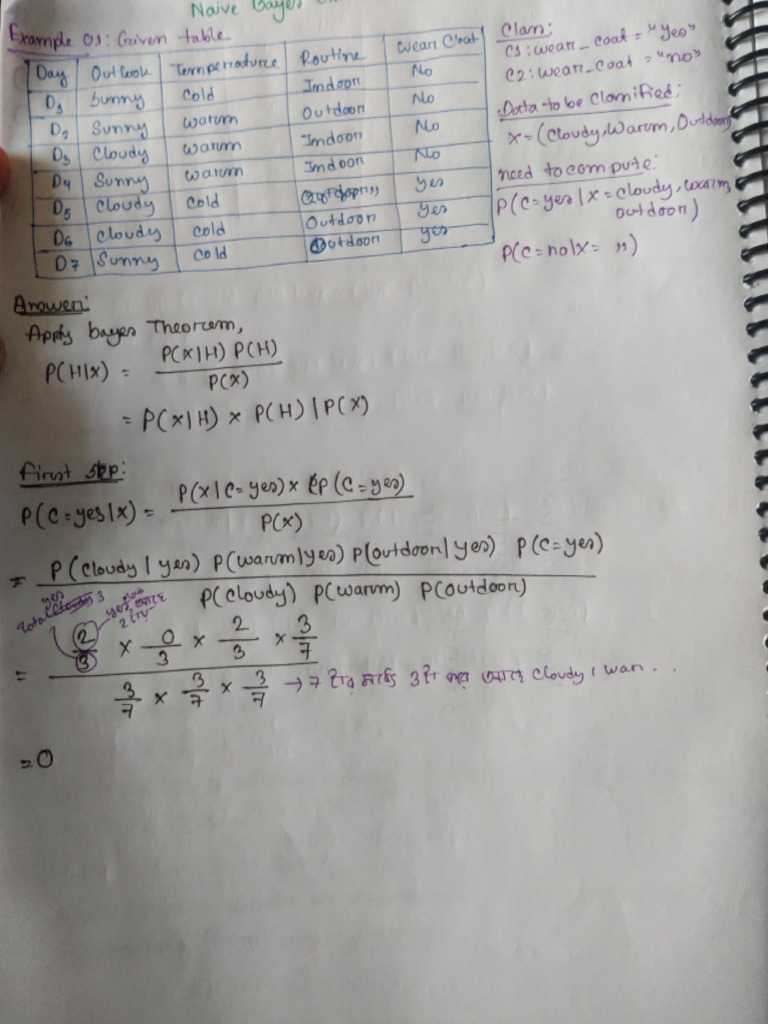 Naive Bayes
Example 01: Given table
Day Outlook Temperature Routine Wear Coat
D1 Sunny Cold Indoor No
D2 Sunny Warm Outdoor No
D3 Cloudy Warm Indoor No
D4 Sunny Warm Indoor No
D5 Cloudy Cold Yes
D6 Cloudy Cold Outdoor Yes
D7 Sunny Cold Outdoor Yes
Class:
C1: wear_coat = "yes"
C2: wear_coat = "no"
Data to be Classified:
X = (Cloudy, Warm, Outdoor)
need to compute:
P(C=yes | X = cloudy, warm,
outdoor)
P(C=no|X= ,,)
Answer:
Apply bayes Theorem,
P(H|X) = P(X|H) P(H) / P(X)
= P(X|H) × P(H) | P(X)
First step:
P(C=yes|X) = P(X|C=yes) × P(C=yes) / P(X)
= P(Cloudy | yes) P(warm|yes) P(outdoor| yes) P(C=yes)
P(cloudy) P(warm) P(outdoor)
yes
total 3
= 2/3 × 0/3 × 2/3 × 3/7
3/7 × 3/7 × 3/7 → 7 টার মধ্যে 3 টা আছে Cloudy, War...
= 0